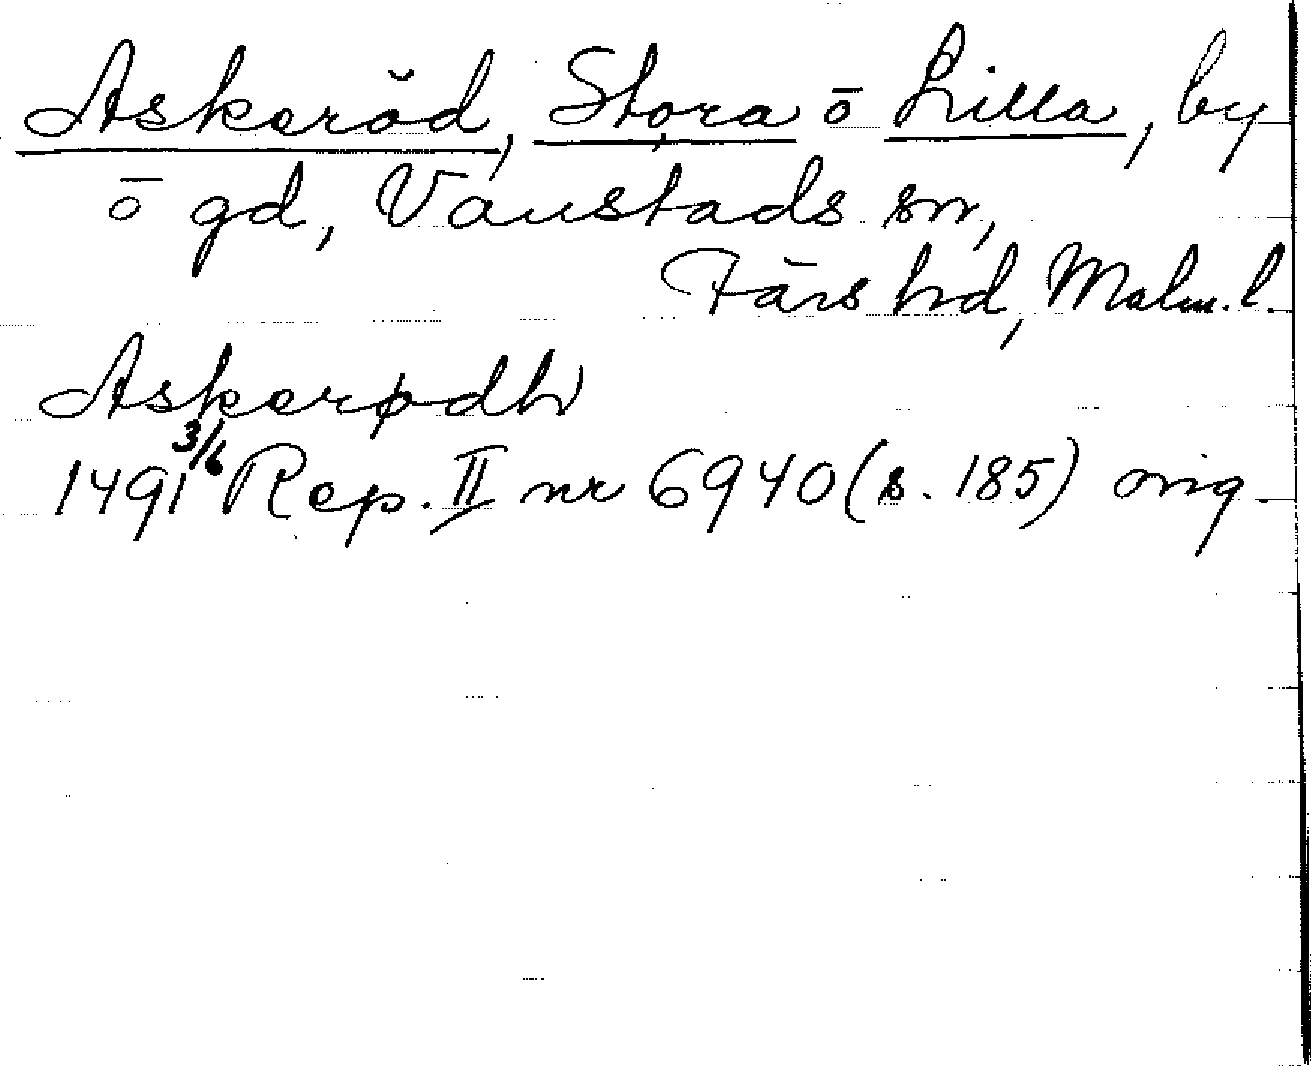 Askeröd, Stora ō Lilla, by
ō gd, Vanstads sn,
Färs hd, Malm.l.
Askerødh
1491 3/6 Rep. II nr 6940 (s. 185) orig.